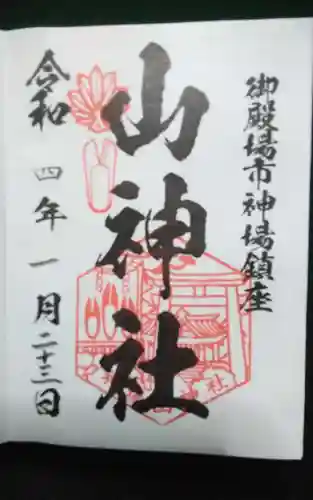 御殿場市神場鎮座
山神社
令和四年一月二十三日